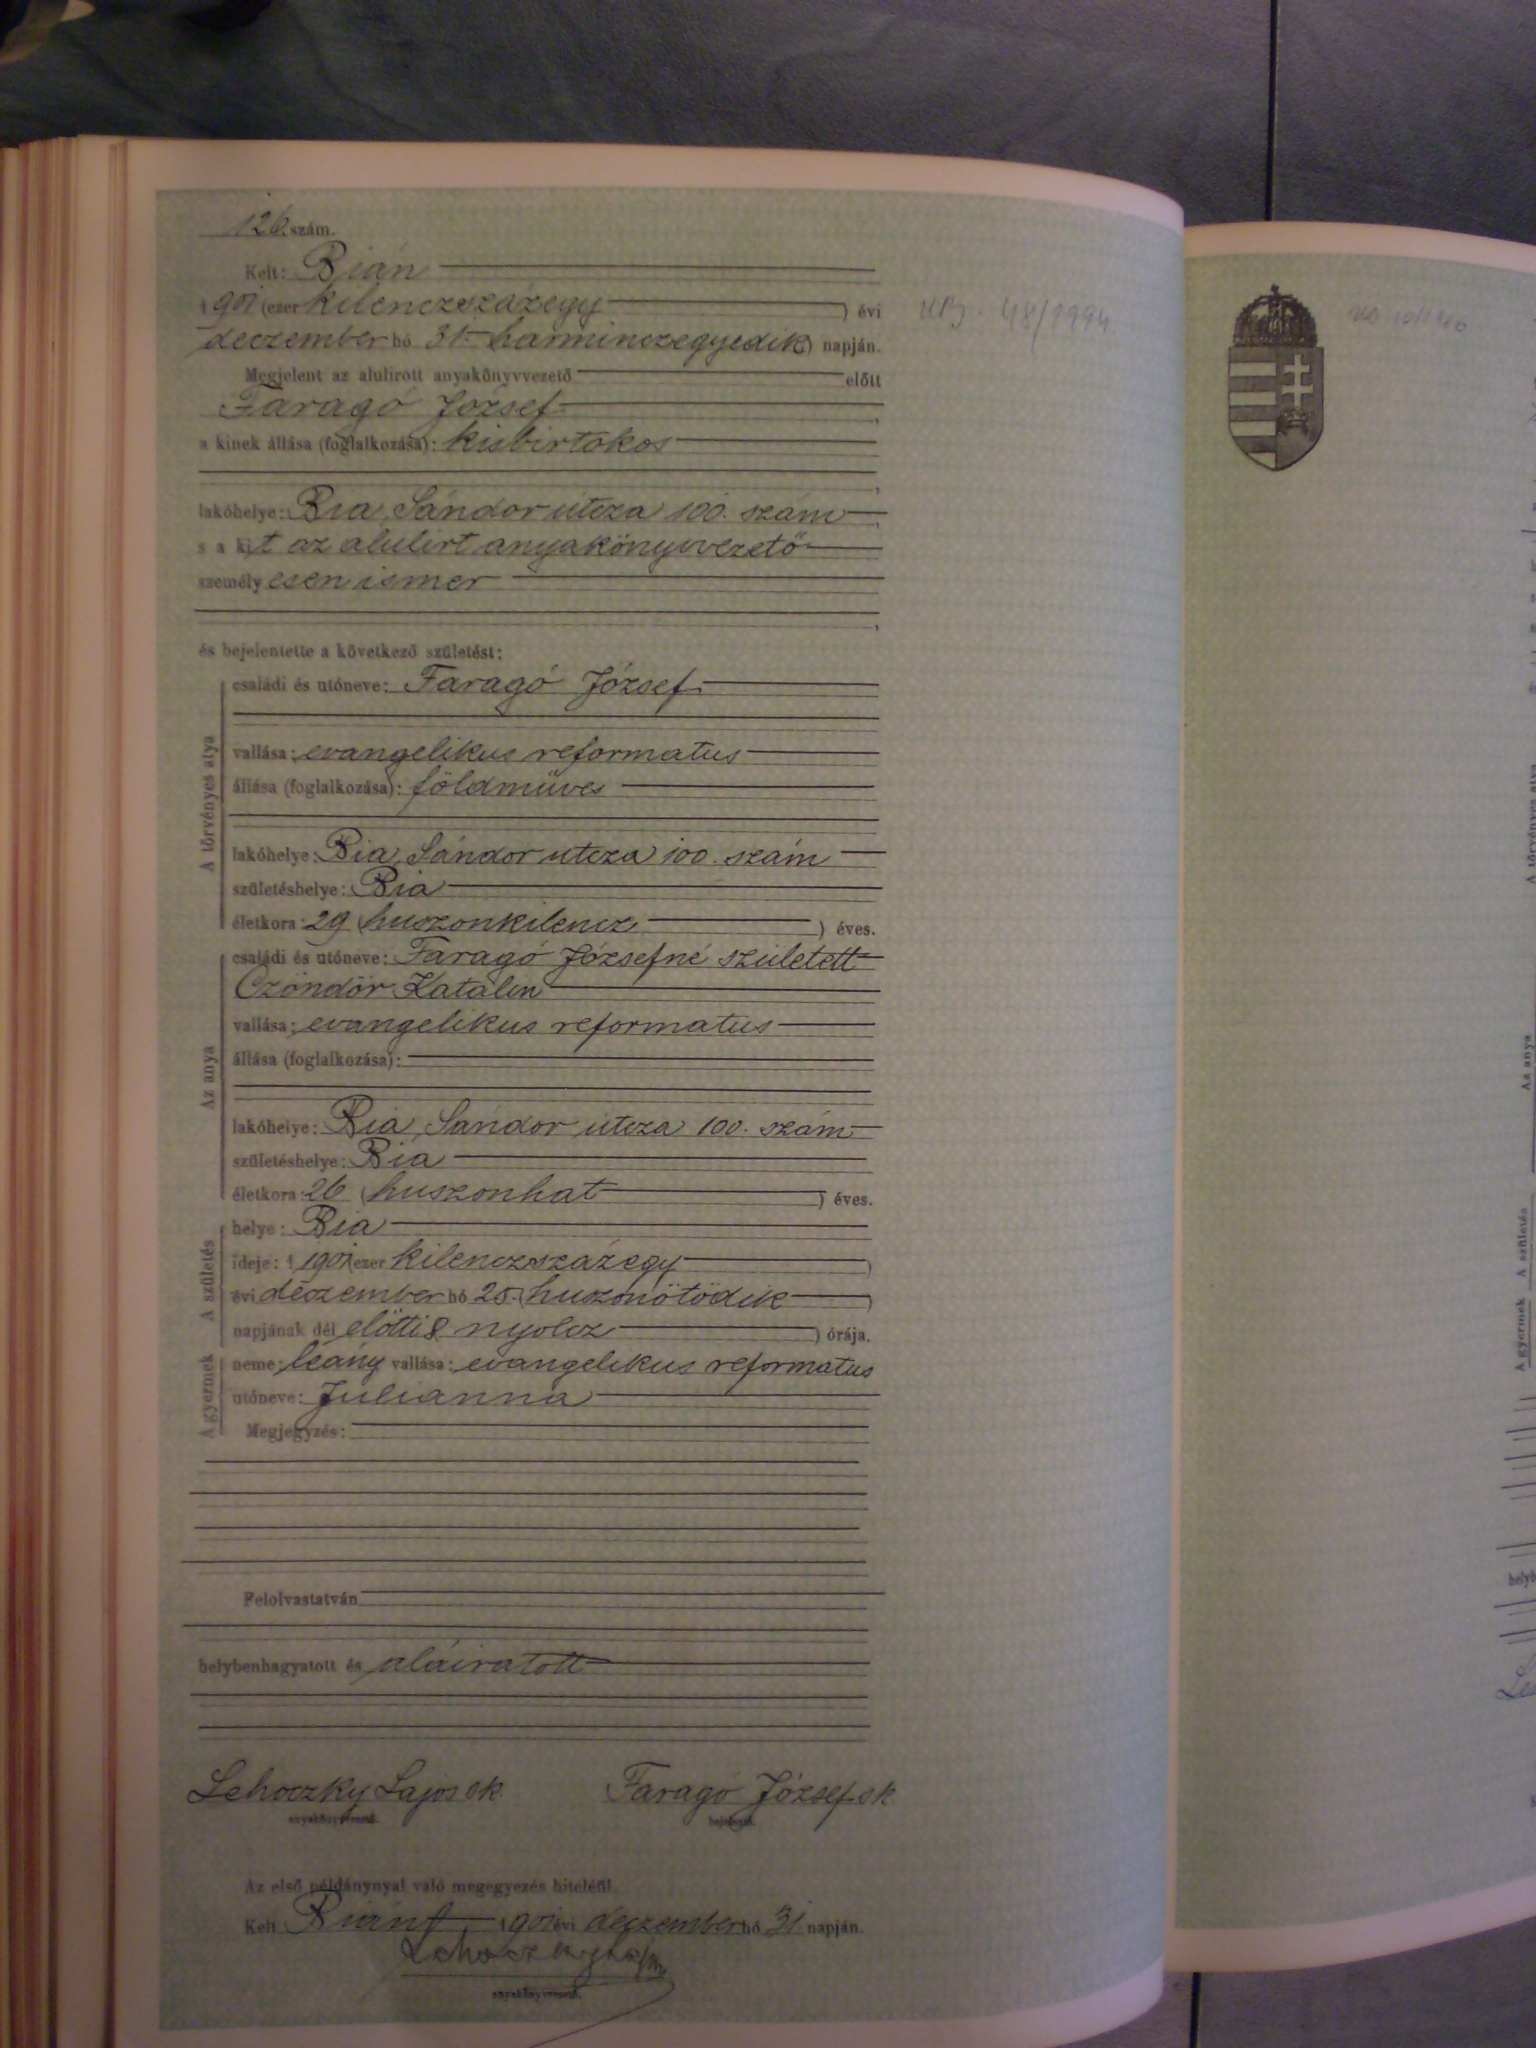 126. szám.
Kelt: Bián
1901 (ezer kilenczszázegy) évi
deczember hó 31. (harminczegyedik) napján.
Megjelent az alulirott anyakönyvvezető előtt
Faragó József,
a kinek állása (foglalkozása): kisbirtokos
,
lakóhelye: Bia, Sándor utcza 100. szám,
s a kit az alulirt anyakönyvvezető
személyesen ismer
,
és bejelentette a következő születést:
A törvényes atya
családi és utóneve: Faragó József
vallása: evangelikus reformatus
állása (foglalkozása): földműves
lakóhelye: Bia, Sándor utcza 100. szám
születéshelye: Bia
életkora: 29 (huszonkilencz) éves.
Az anya
családi és utóneve: Faragó Józsefné született
Czöndör Katalin
vallása: evangelikus reformatus
állása (foglalkozása):
lakóhelye: Bia, Sándor utcza 100. szám
születéshelye: Bia
életkora: 26 (huszonhat) éves.
A születés
helye: Bia
ideje: 1901 (ezer kilenczszázegy)
évi deczember hó 25. (huszonötödik)
napjának dél előtti 8 nyolcz) órája.
A gyermek
neme: leány vallása: evangelikus reformatus
utóneve: Julianna
Megjegyzés:
Felolvastatván
helybenhagyatott és aláiratott
Lehoczky Lajos sk Faragó József sk
anyakönyvvezető. bejelentő.
Az első példánynyal való megegyezés hiteléül.
Kelt Bián, 1901 évi deczember hó 31. napján.
Lehoczky Lajos
anyakönyvvezető.
48/1994.
A törvényes atya
Az anya
A születés
A gyermek